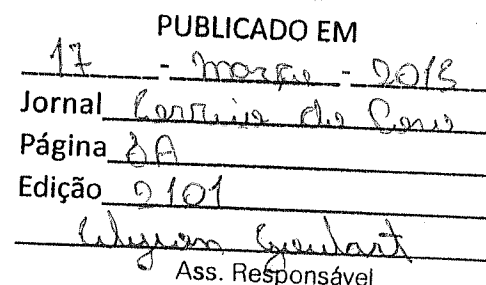 PUBLICADO EM
17 - março - 2015
Jornal Correio do Povo
Página 8A
Edição 2101
Goulart
Ass. Responsável